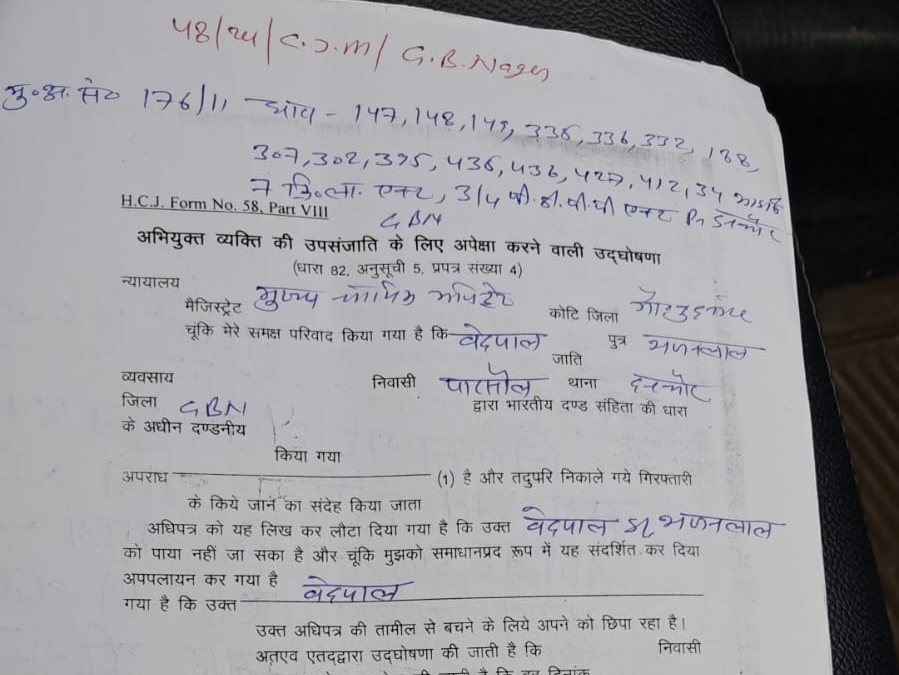 48/24/C.J.M/ G.B.Nager
मु.अ. सं० 176/11 धारा - 147, 148, 149, 336, 332, 188,
307, 302, 395, 436, 427, 412, 34 भादवि
7 क्रि.ला. एक्ट, 3/4 पी.डी.पी.पी एक्ट Ps दनकौर
H.C.J. Form No. 58, Part VIII
GBN
अभियुक्त व्यक्ति की उपसंजाति के लिए अपेक्षा करने वाली उद्घोषणा
(धारा 82, अनुसूची 5, प्रपत्र संख्या 4)
न्यायालय
मैजिस्ट्रेट मुख्य न्यायिक मजिस्ट्रेट कोटि जिला गौतमबुद्धनगर
चूंकि मेरे समक्ष परिवाद किया गया है कि वेदपाल पुत्र भजनलाल
जाति
व्यवसाय निवासी पारसौल थाना दनकौर
जिला GBN द्वारा भारतीय दण्ड संहिता की धारा
के अधीन दण्डनीय
किया गया
अपराध (1) है और तदुपरि निकाले गये गिरफ्तारी
के किये जाने का संदेह किया जाता
अधिपत्र को यह लिख कर लौटा दिया गया है कि उक्त वेदपाल S/o भजनलाल
को पाया नहीं जा सका है और चूंकि मुझको समाधानप्रद रूप में यह संदर्शित कर दिया
अपपलायन कर गया है
गया है कि उक्त वेदपाल
उक्त अधिपत्र की तामील से बचने के लिये अपने को छिपा रहा है।
अतएव एतद्द्वारा उद्घोषणा की जाती है कि निवासी